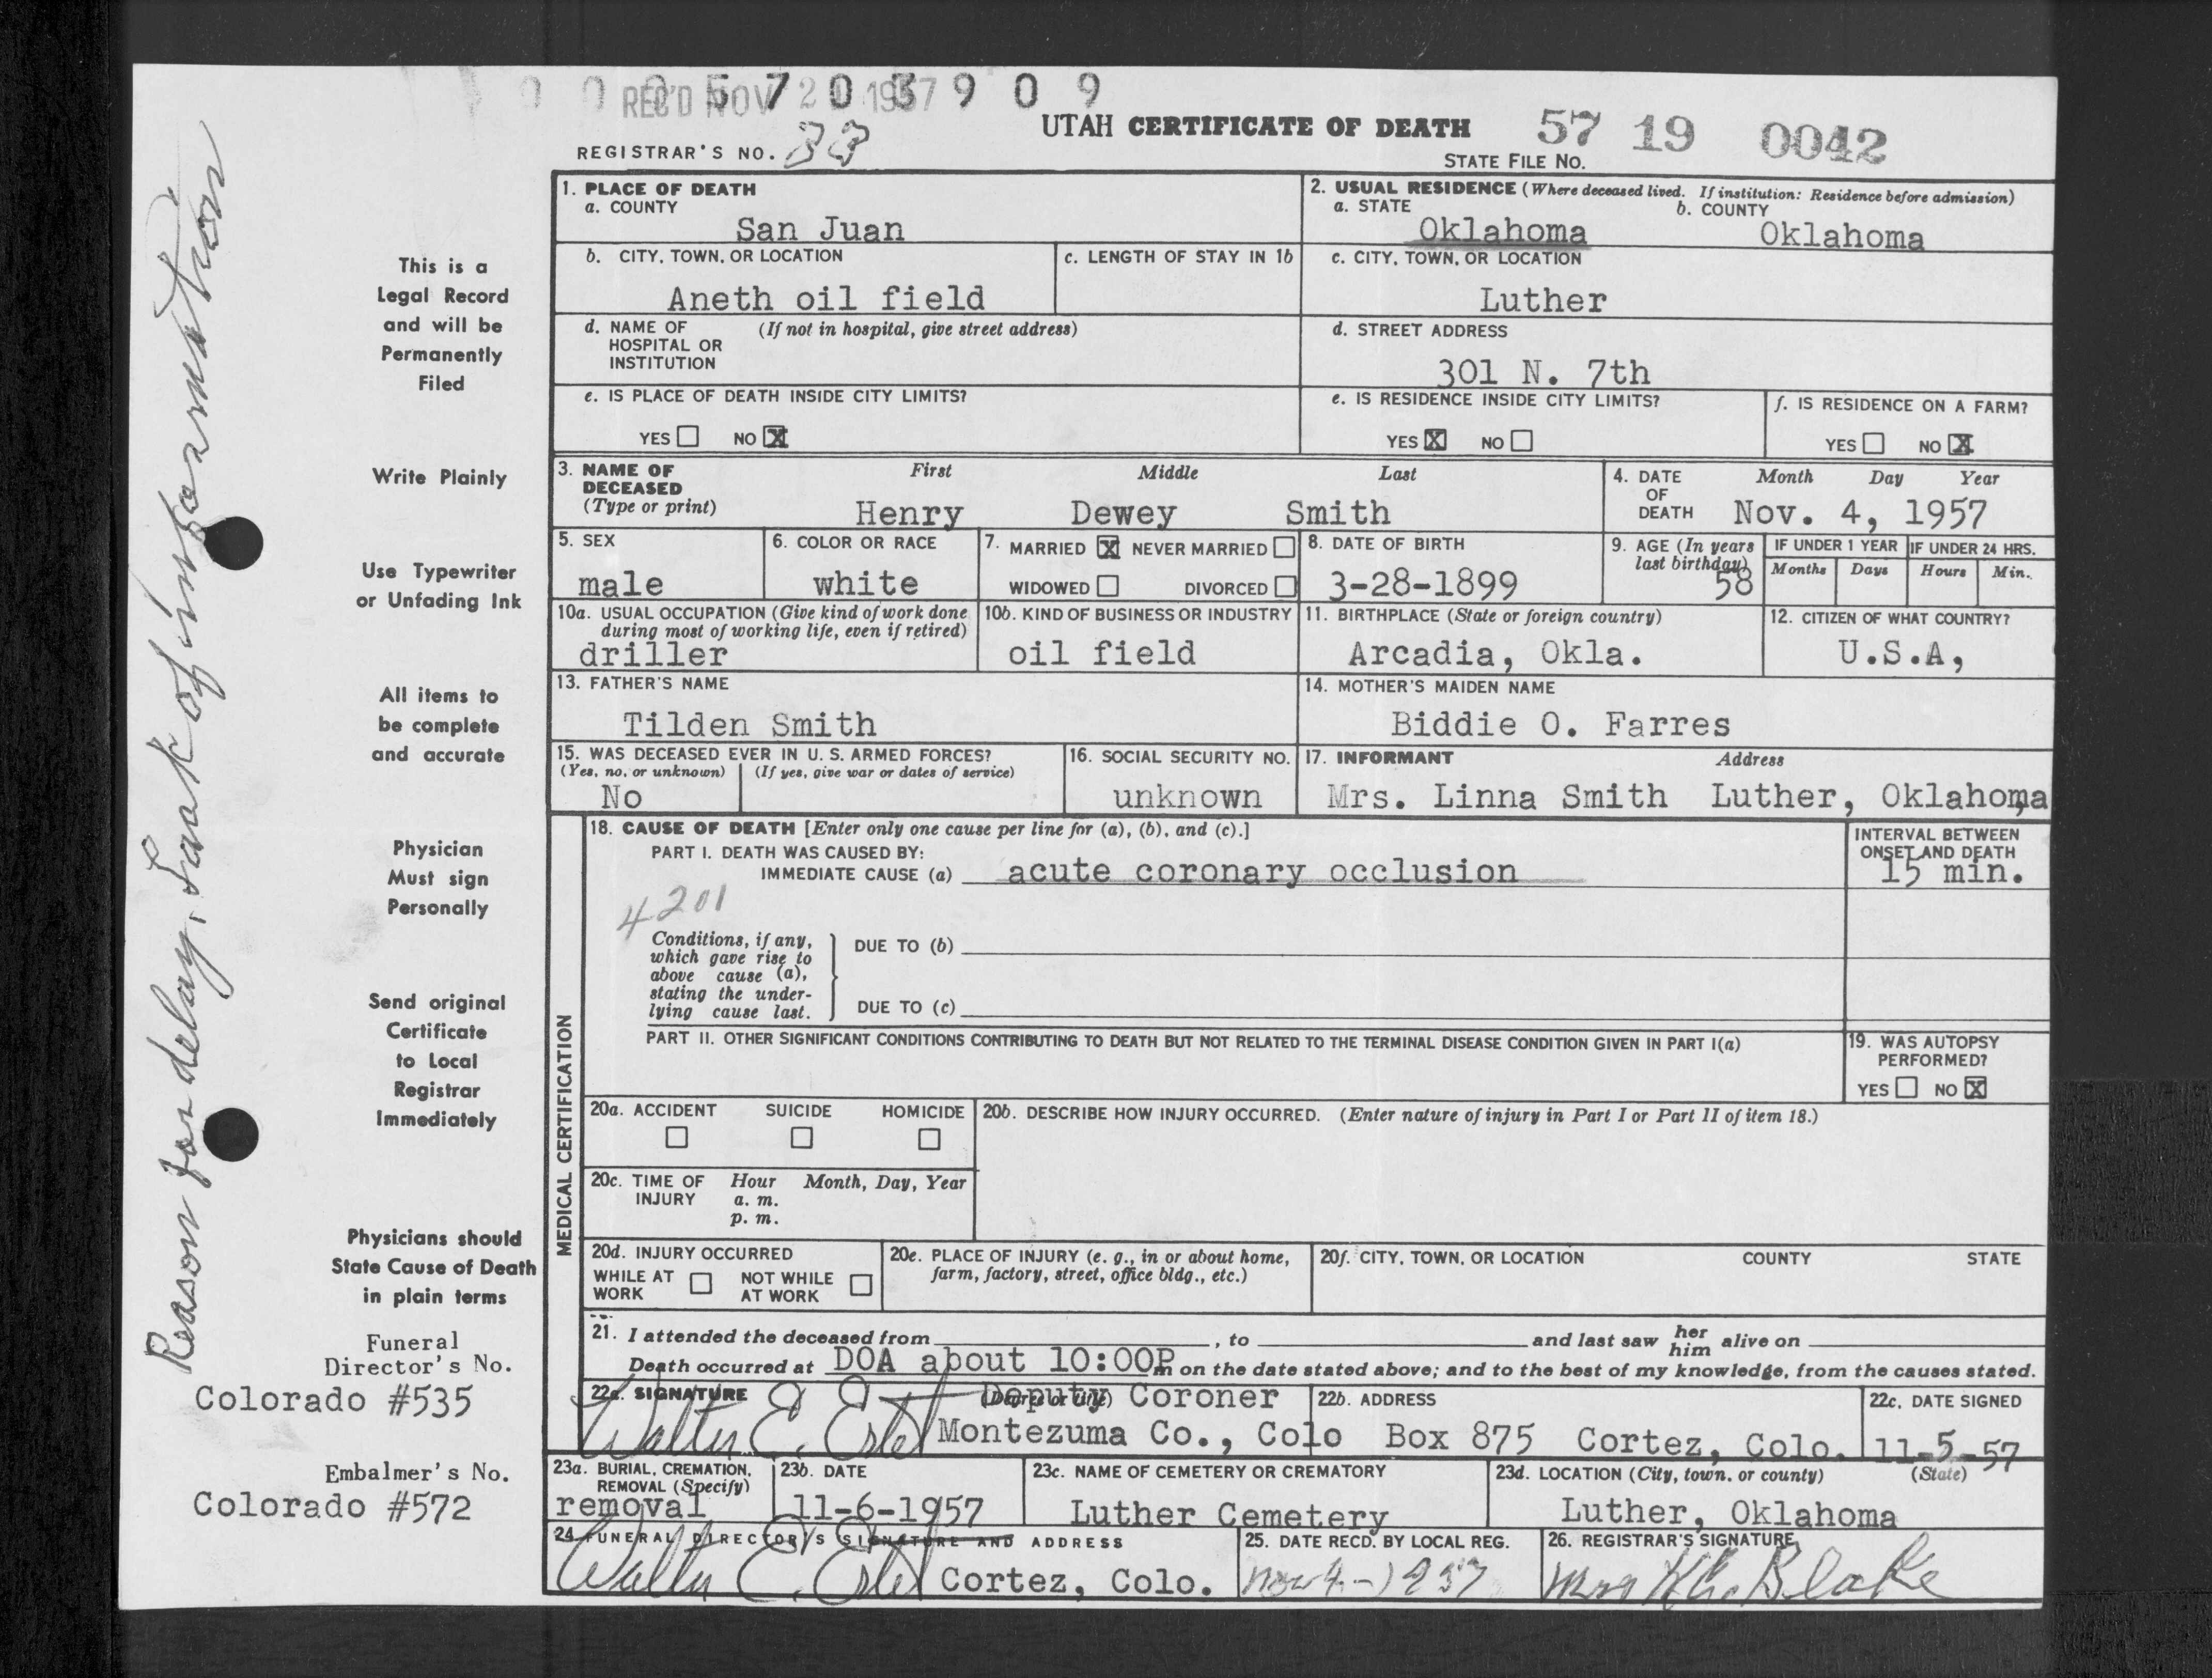 REC'D NOV 2 1957
0 0 0 5 7 0 3 9 0 9
UTAH CERTIFICATE OF DEATH 57 19 0042
REGISTRAR'S NO. 33
STATE FILE No.
1. PLACE OF DEATH
a. COUNTY
San Juan
2. USUAL RESIDENCE (Where deceased lived. If institution: Residence before admission)
a. STATE b. COUNTY
Oklahoma Oklahoma
b. CITY, TOWN, OR LOCATION
Aneth oil field
c. LENGTH OF STAY IN 1b
c. CITY, TOWN, OR LOCATION
Luther
d. NAME OF (If not in hospital, give street address)
HOSPITAL OR
INSTITUTION
d. STREET ADDRESS
301 N. 7th
e. IS PLACE OF DEATH INSIDE CITY LIMITS?
YES NO X
e. IS RESIDENCE INSIDE CITY LIMITS?
YES X NO
f. IS RESIDENCE ON A FARM?
YES NO X
3. NAME OF First Middle Last
DECEASED
(Type or print) Henry Dewey Smith
4. DATE Month Day Year
OF
DEATH Nov. 4, 1957
5. SEX
male
6. COLOR OR RACE
white
7. MARRIED X NEVER MARRIED
WIDOWED DIVORCED
8. DATE OF BIRTH
3-28-1899
9. AGE (In years
last birthday)
58
IF UNDER 1 YEAR IF UNDER 24 HRS.
Months Days Hours Min.
10a. USUAL OCCUPATION (Give kind of work done
during most of working life, even if retired)
driller
10b. KIND OF BUSINESS OR INDUSTRY
oil field
11. BIRTHPLACE (State or foreign country)
Arcadia, Okla.
12. CITIZEN OF WHAT COUNTRY?
U.S.A,
13. FATHER'S NAME
Tilden Smith
14. MOTHER'S MAIDEN NAME
Biddie O. Farres
15. WAS DECEASED EVER IN U. S. ARMED FORCES?
(Yes, no, or unknown) (If yes, give war or dates of service)
No
16. SOCIAL SECURITY NO.
unknown
17. INFORMANT Address
Mrs. Linna Smith Luther, Oklahoma
MEDICAL CERTIFICATION
18. CAUSE OF DEATH [Enter only one cause per line for (a), (b), and (c).]
PART I. DEATH WAS CAUSED BY:
IMMEDIATE CAUSE (a) acute coronary occlusion
INTERVAL BETWEEN
ONSET AND DEATH
15 min.
4201
Conditions, if any,
which gave rise to
above cause (a),
stating the under-
lying cause last.
DUE TO (b)
DUE TO (c)
PART II. OTHER SIGNIFICANT CONDITIONS CONTRIBUTING TO DEATH BUT NOT RELATED TO THE TERMINAL DISEASE CONDITION GIVEN IN PART I(a)
19. WAS AUTOPSY
PERFORMED?
YES NO X
20a. ACCIDENT SUICIDE HOMICIDE
20b. DESCRIBE HOW INJURY OCCURRED. (Enter nature of injury in Part I or Part II of item 18.)
20c. TIME OF Hour Month, Day, Year
INJURY a. m.
p. m.
20d. INJURY OCCURRED
WHILE AT NOT WHILE
WORK AT WORK
20e. PLACE OF INJURY (e. g., in or about home,
farm, factory, street, office bldg., etc.)
20f. CITY, TOWN, OR LOCATION COUNTY STATE
21. I attended the deceased from , to and last saw her him alive on
Death occurred at DOA about 10:00P m on the date stated above; and to the best of my knowledge, from the causes stated.
22a. SIGNATURE (Degree or title)
Walter E. Ertel Deputy Coroner
Montezuma Co., Colo
22b. ADDRESS
Box 875 Cortez, Colo.
22c. DATE SIGNED
11-5-57
23a. BURIAL, CREMATION,
REMOVAL (Specify)
removal
23b. DATE
11-6-1957
23c. NAME OF CEMETERY OR CREMATORY
Luther Cemetery
23d. LOCATION (City, town, or county) (State)
Luther, Oklahoma
24. FUNERAL DIRECTOR'S SIGNATURE AND ADDRESS
Walter E. Ertel Cortez, Colo.
25. DATE RECD. BY LOCAL REG.
Nov 4-1957
26. REGISTRAR'S SIGNATURE
Mrs Blake
This is a
Legal Record
and will be
Permanently
Filed
Write Plainly
Use Typewriter
or Unfading Ink
All items to
be complete
and accurate
Physician
Must sign
Personally
Send original
Certificate
to Local
Registrar
Immediately
Physicians should
State Cause of Death
in plain terms
Funeral
Director's No.
Colorado #535
Embalmer's No.
Colorado #572
Reason for delay, Laak of information